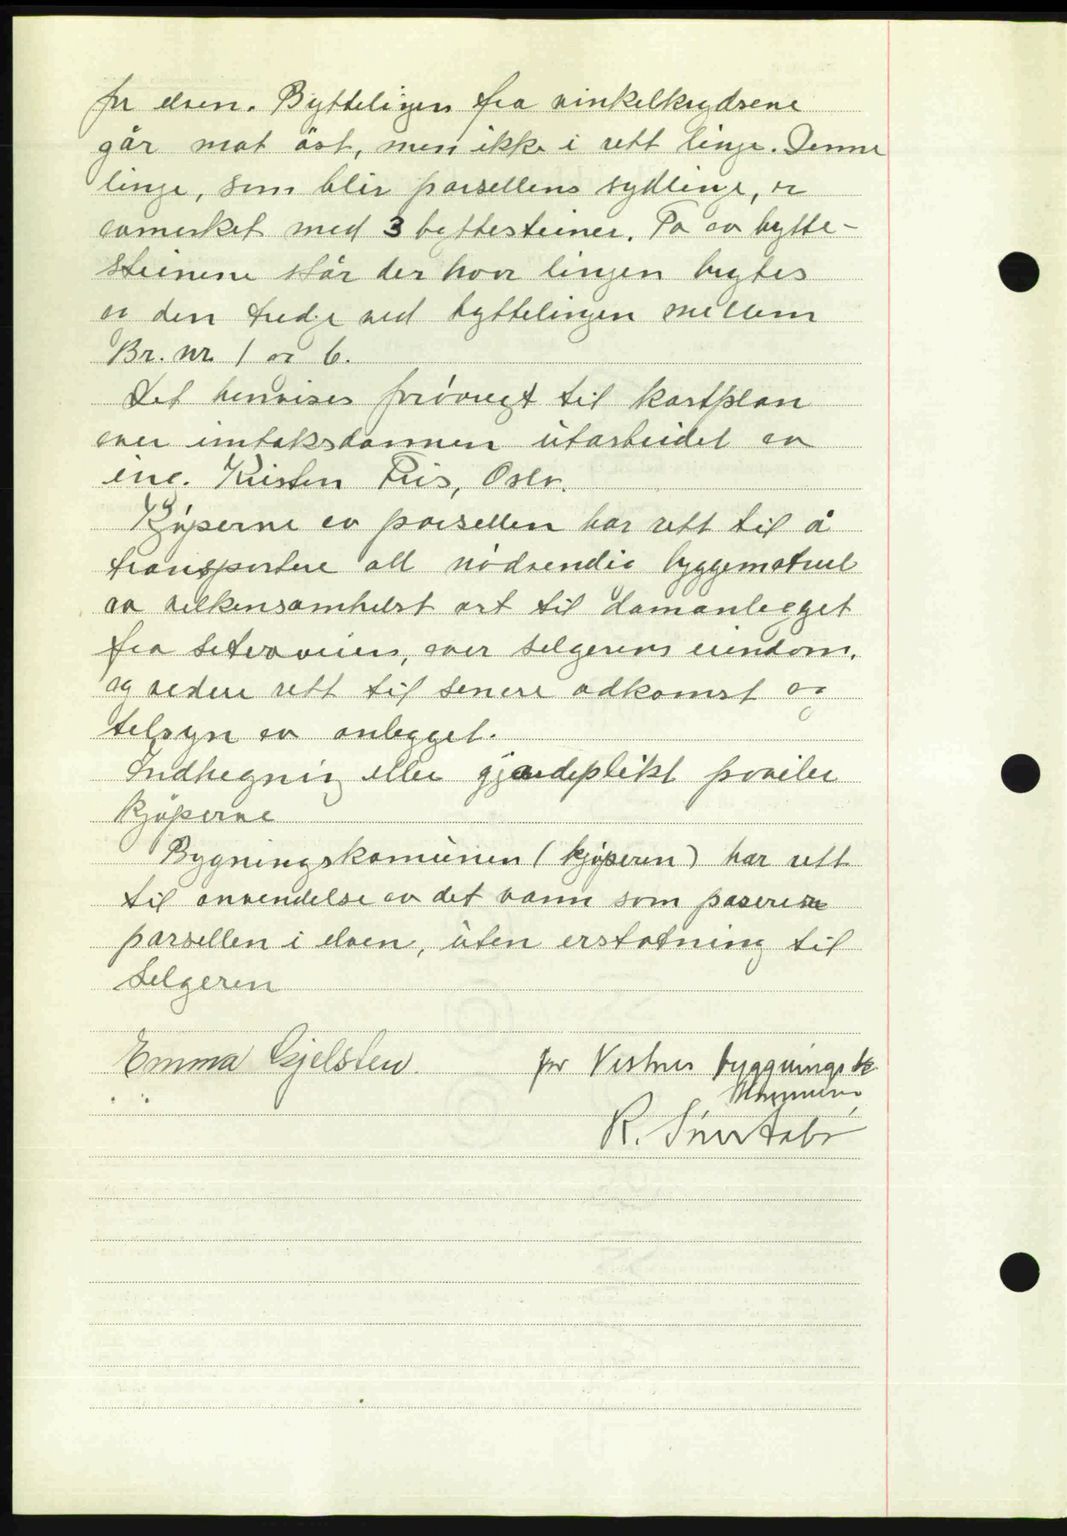 for elven. Byttelinjen fra vinkelkrydsene
går mot öst, men ikke i rett linje. Denne
linje, som blir parsellens sydlinje, er
avmerket med 3 byttesteiner. To av bytte-
steinene står der hvor linjen brytes
og den tredje ved byttelinjen mellem
Br. nr. 1 og 6.
Det henvises forövrigt til kartplan
over inntaksdammen utarbeidet av
ing. Kristen Friis, Oslo.
Kjöperne av parsellen har rett til å
transportere all nödvendig byggemateriel
av hvilkensomhelst art til damanlegget
fra seterveien, over selgerens eiendom,
og videre rett til senere adkomst og
tilsyn av anlegget.
Indhegning eller gjerdeplikt påviler
kjöperne
Bygningskomunen (kjöperen) har rett
til anvendelse av det vann som paserer
parsellen i elven, uten erstatning til
Selgeren
Emma Gjelsten.
for Vestnes bygnings
kommune
R.